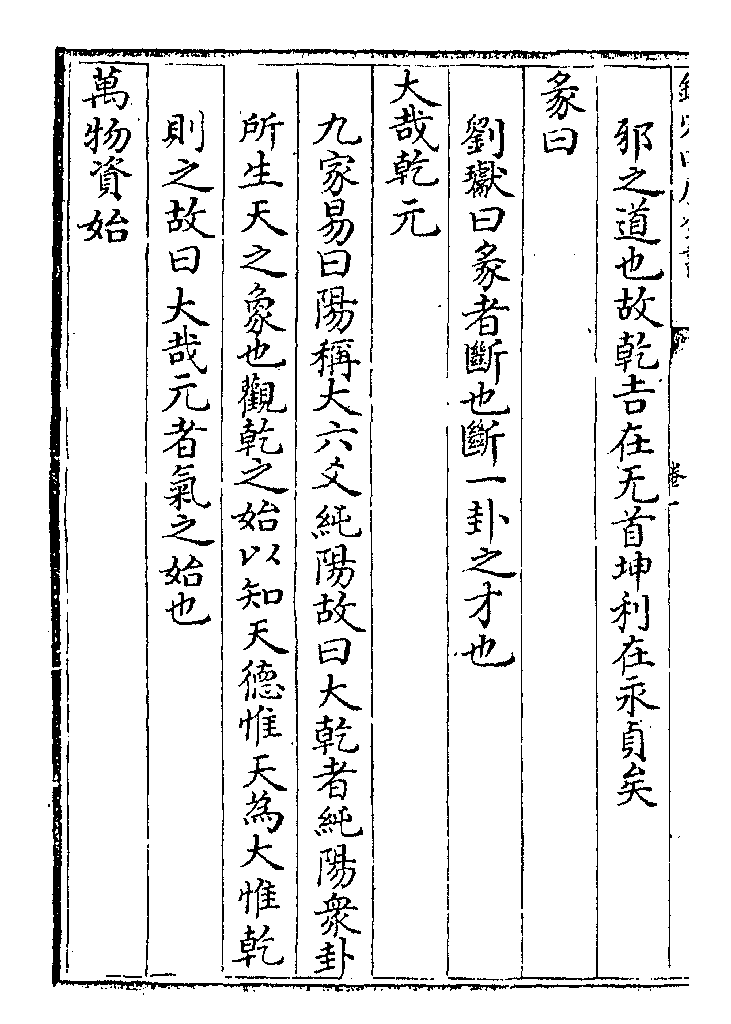 邪之道也故乾吉在无首坤利在永貞矣
彖曰
劉瓛曰彖者斷也斷一卦之才也
大哉乾元
九家易曰陽稱大六爻純陽故曰大乾者純陽衆卦
所生天之象也觀乾之始以知天德惟天為大惟乾
則之故曰大哉元者氣之始也
萬物資始
卷一